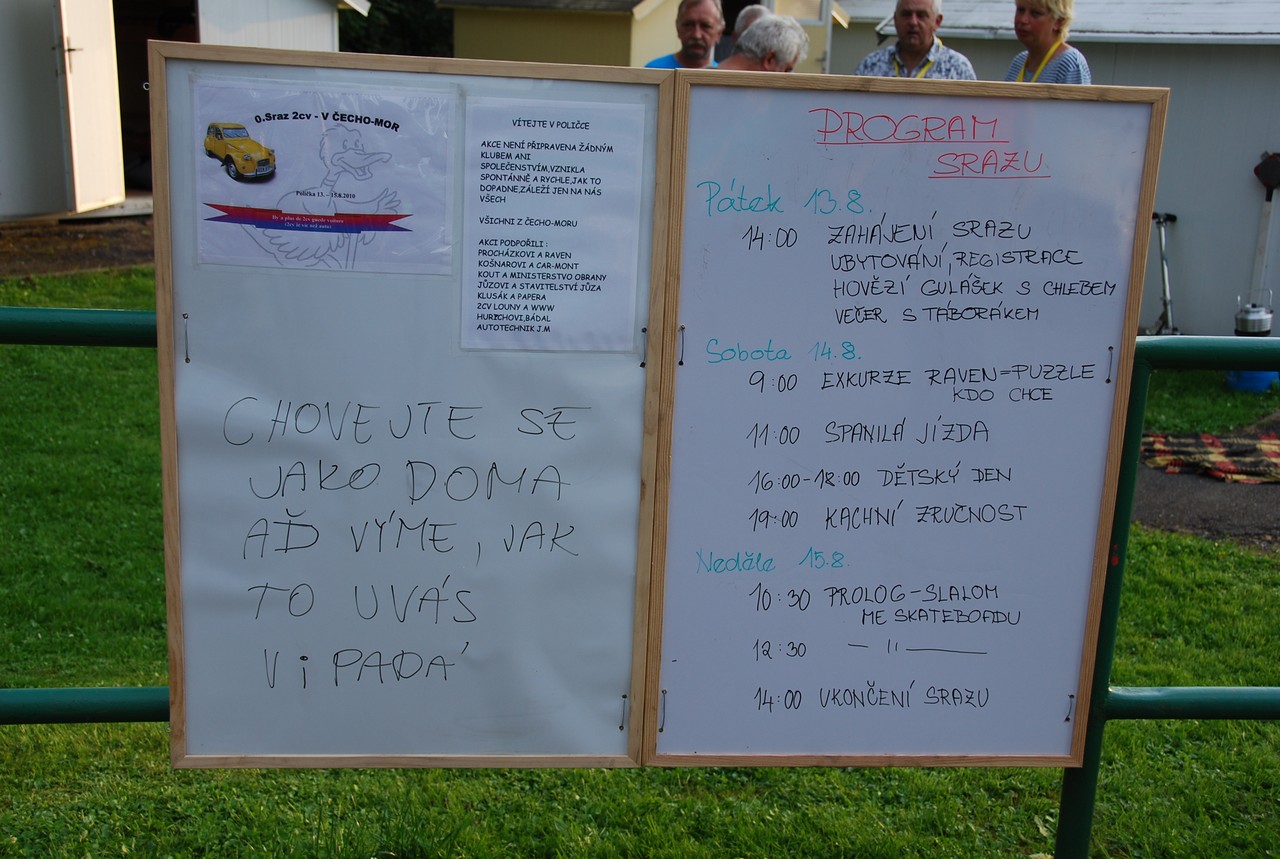 0.Sraz 2cv - V ČECHO-MOR
Polička 13. - 15.8.2010
VÍTEJTE V POLIČCE
AKCE NENÍ PŘIPRAVENA ŽÁDNÝM
KLUBEM ANI
SPOLEČENSTVÍM,VZNIKLA
SPONTÁNNĚ A RYCHLE,JAK TO
DOPADNE,ZÁLEŽÍ JEN NA NÁS
VŠECH
VŠICHNI Z ČECHO-MORU
AKCI PODPOŘILI :
PROCHÁZKOVI A RAVEN
KOŠNAROVI A CAR-MONT
KOUT A MINISTERSTVO OBRANY
JŮZOVI A STAVITELSTVÍ JŮZA
KLUSÁK A PAPERA
2CV LOUNY A WWW
HURZCHOVI,BÁDAL
AUTOTECHNIK J.M
CHOVEJTE SE
JAKO DOMA
AĎ VÝME, JAK
TO UVÁS
ViPADÁ
PROGRAM
SRAZU
Pátek 13.8.
14:00 ZAHÁJENÍ SRAZU
UBYTOVÁNÍ, REGISTRACE
HOVĚZÍ GULÁŠEK S CHLEBEM
VEČER S TÁBORÁKEM
Sobota 14.8.
9:00 EXKURZE RAVEN=PUZZLE
KDO CHCE
11:00 SPANILÁ JÍZDA
16:00-18:00 DĚTSKÝ DEN
19:00 KACHNÍ ZRUČNOST
Neděle 15.8.
10:30 PROLOG-SLALOM
ME SKATEBOADU
12:30 — 11 ———
14:00 UKONČENÍ SRAZU